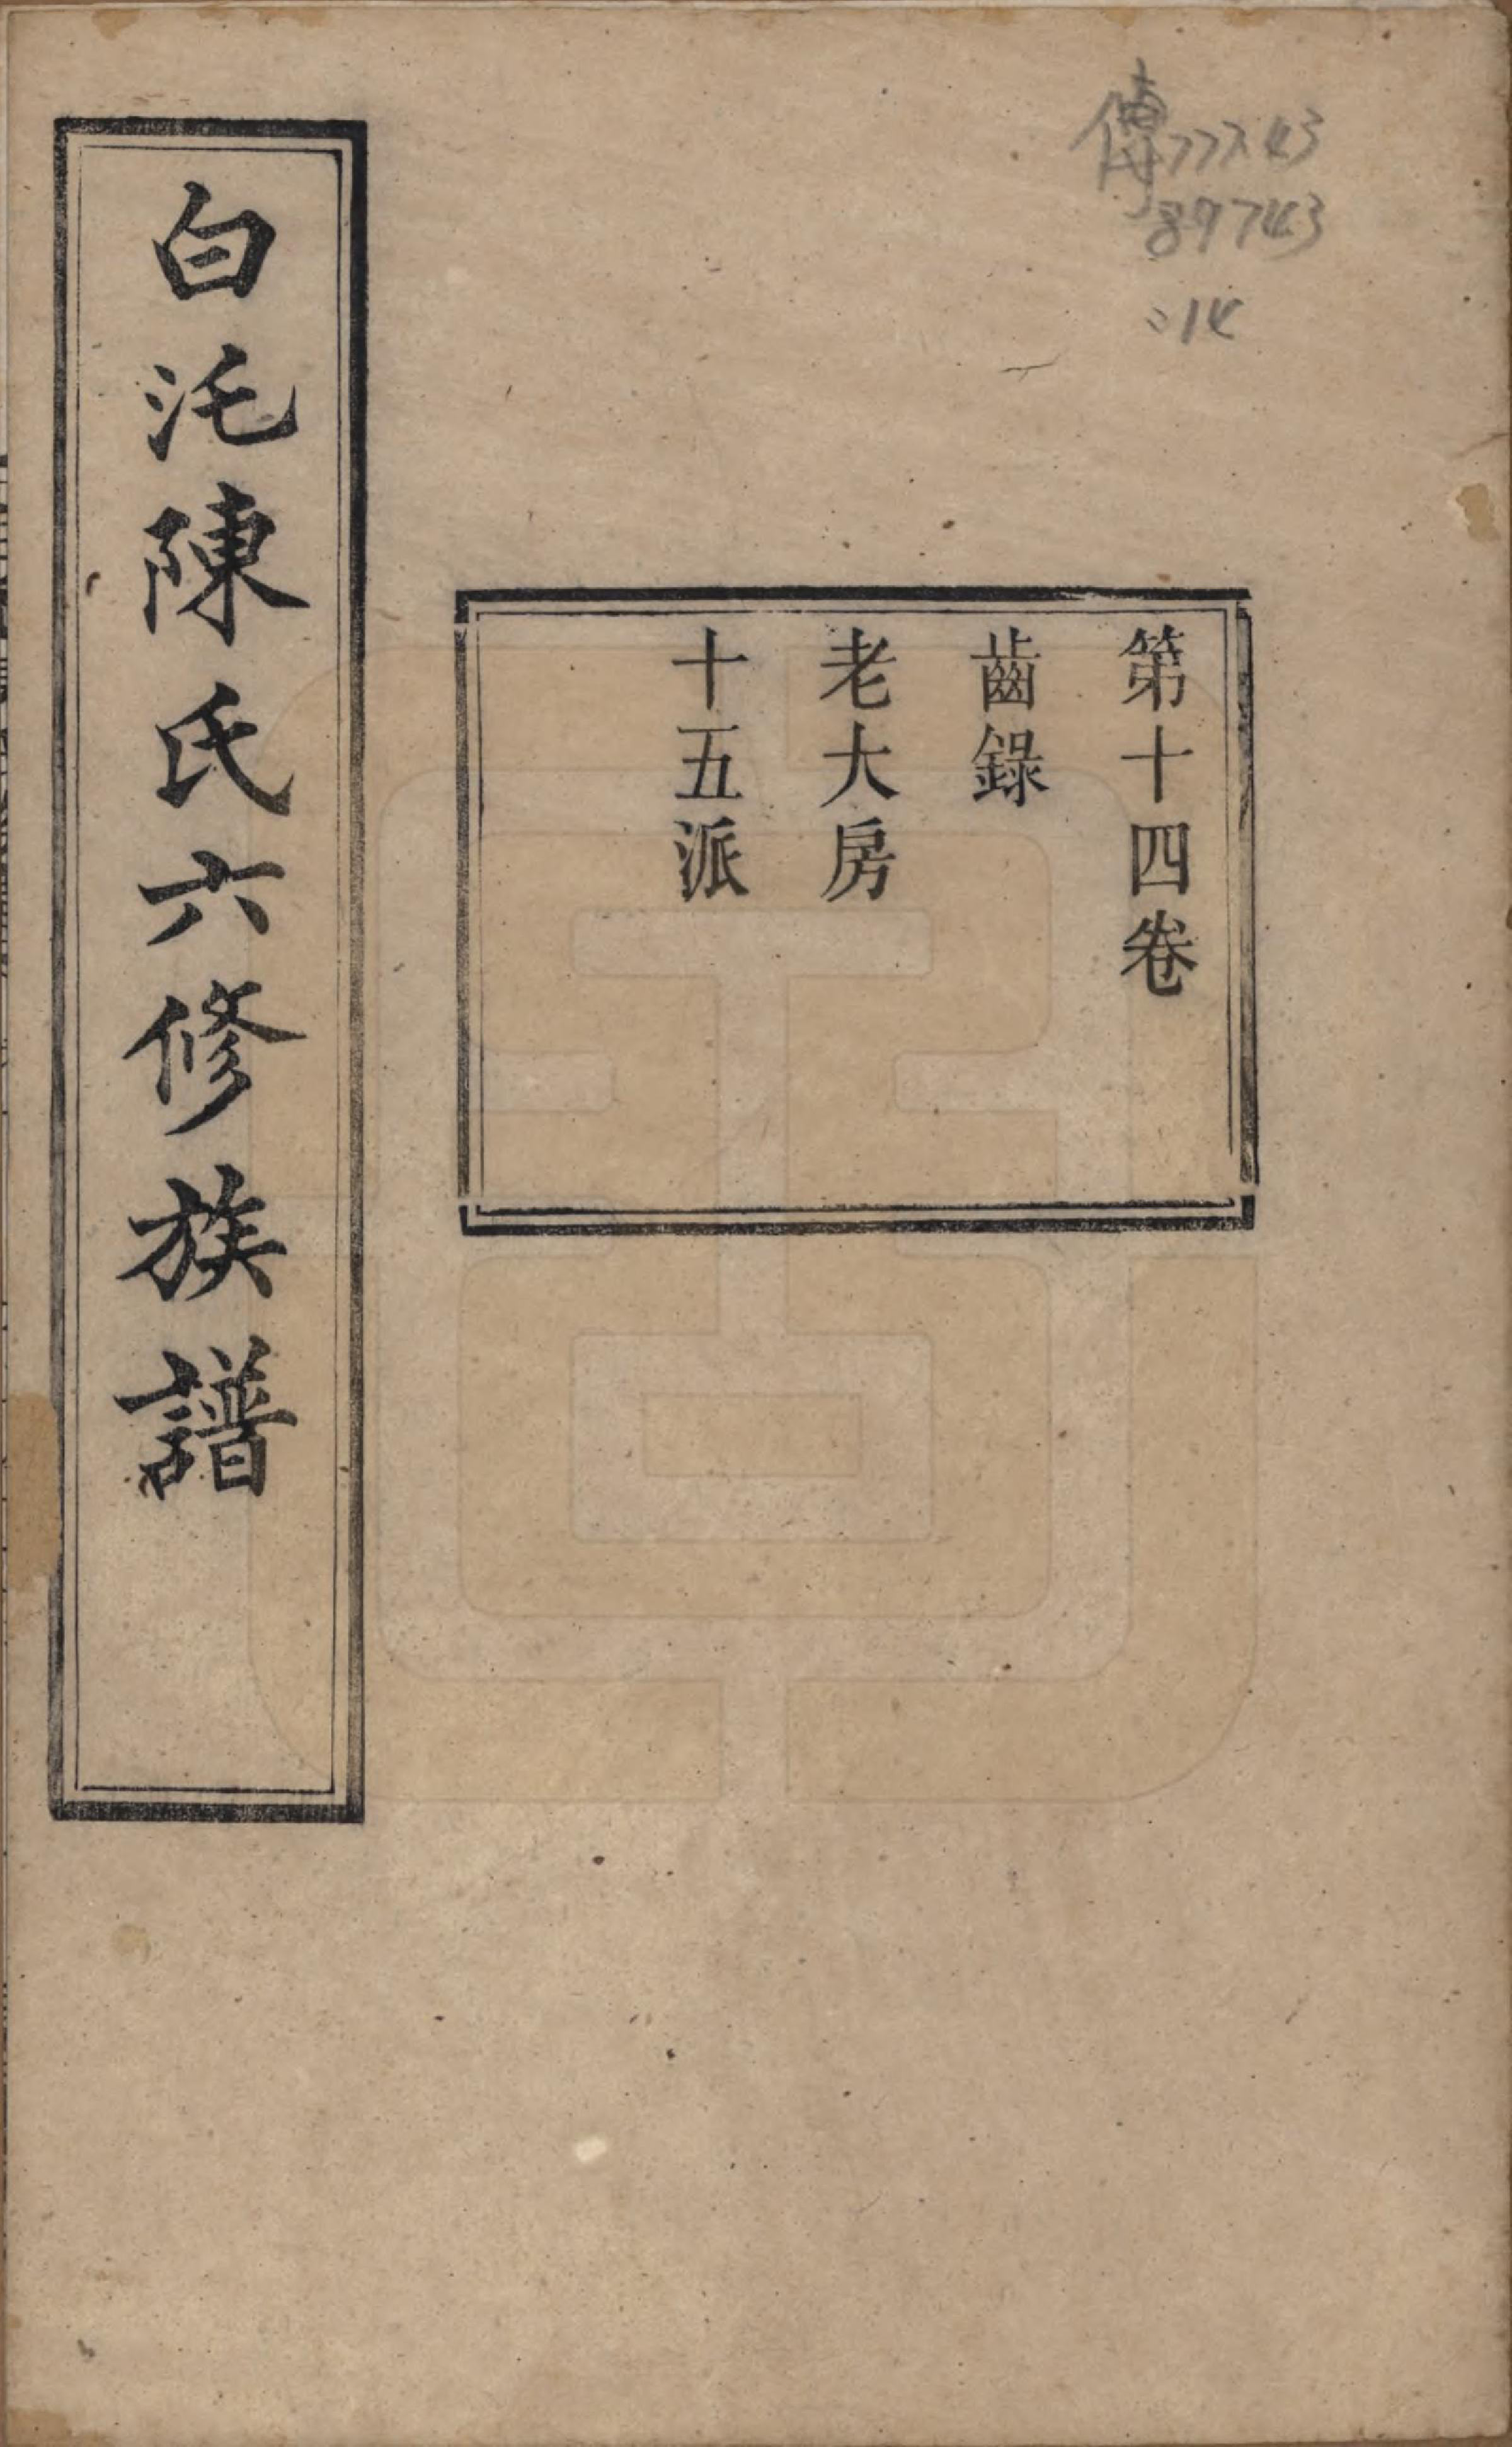 傳777.43
89743
:14
第十四卷
齒錄
老大房
十五派
白沱陳氏六修族譜